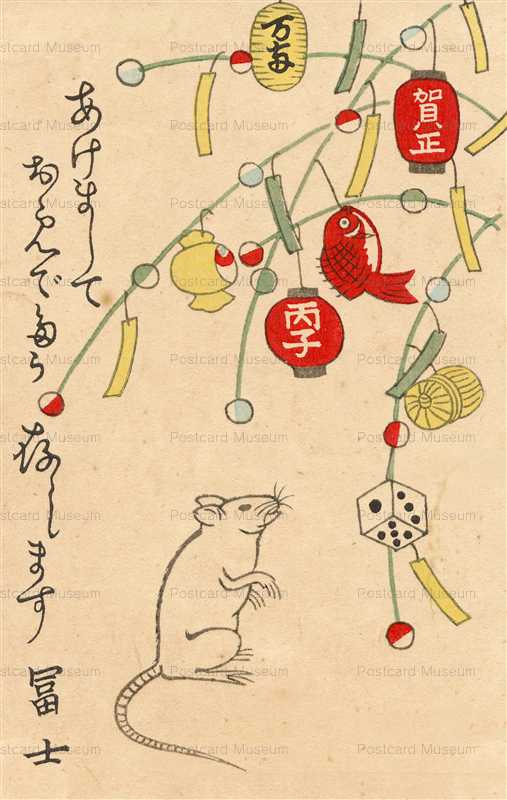 賀正
丙子
あけまして
おめでたう
存します
冨士
Postcard Museum